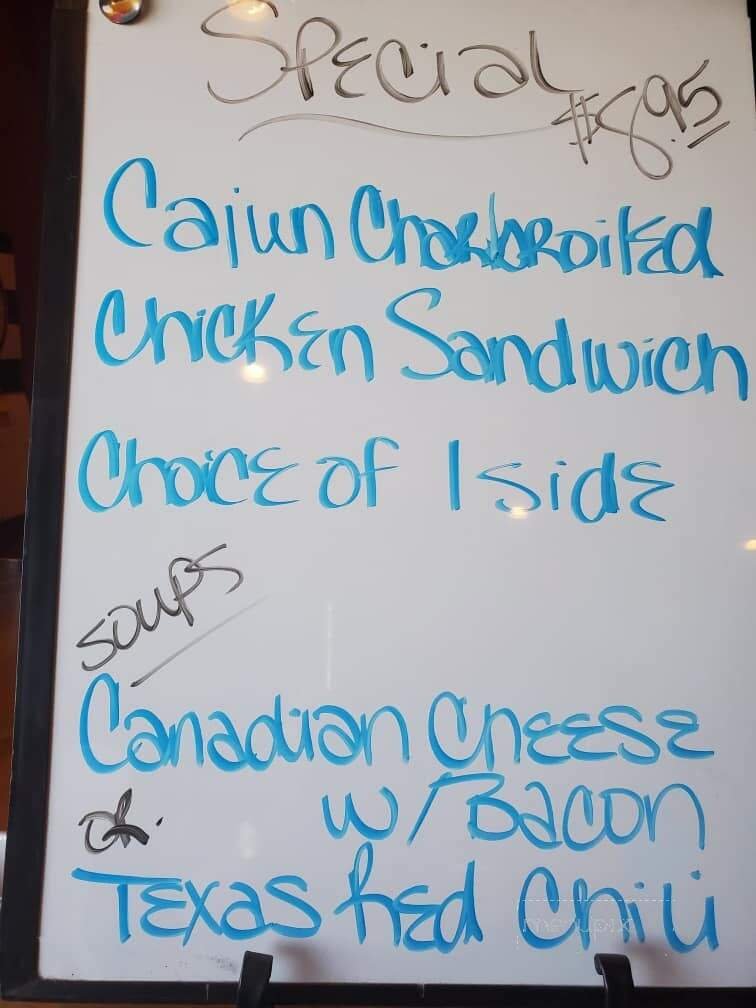 Special $8.95
Cajun Charbroiled
Chicken Sandwich
Choice of 1 side
soups
Canadian Cheese
w/Bacon
Texas Red Chili
menupix